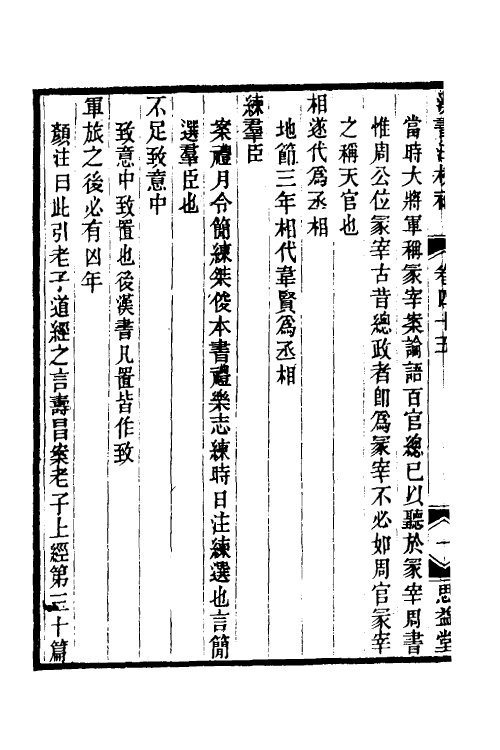 漢書注校補　卷四十五　一　思益堂
當時大將軍稱冢宰案論語百官總已以聽於冢宰周書
惟周公位冢宰古昔總政者卽爲冢宰不必如周官冢宰
之稱天官也
相遂代爲丞相
地節三年相代韋賢爲丞相
練羣臣
案禮月令簡練桀俊本書禮樂志練時日注練選也言簡
選羣臣也
不足致意中
致意中致置也後漢書凡置皆作致
軍旅之後必有凶年
顏注曰此引老子道經之言壽昌案老子上經第三十篇